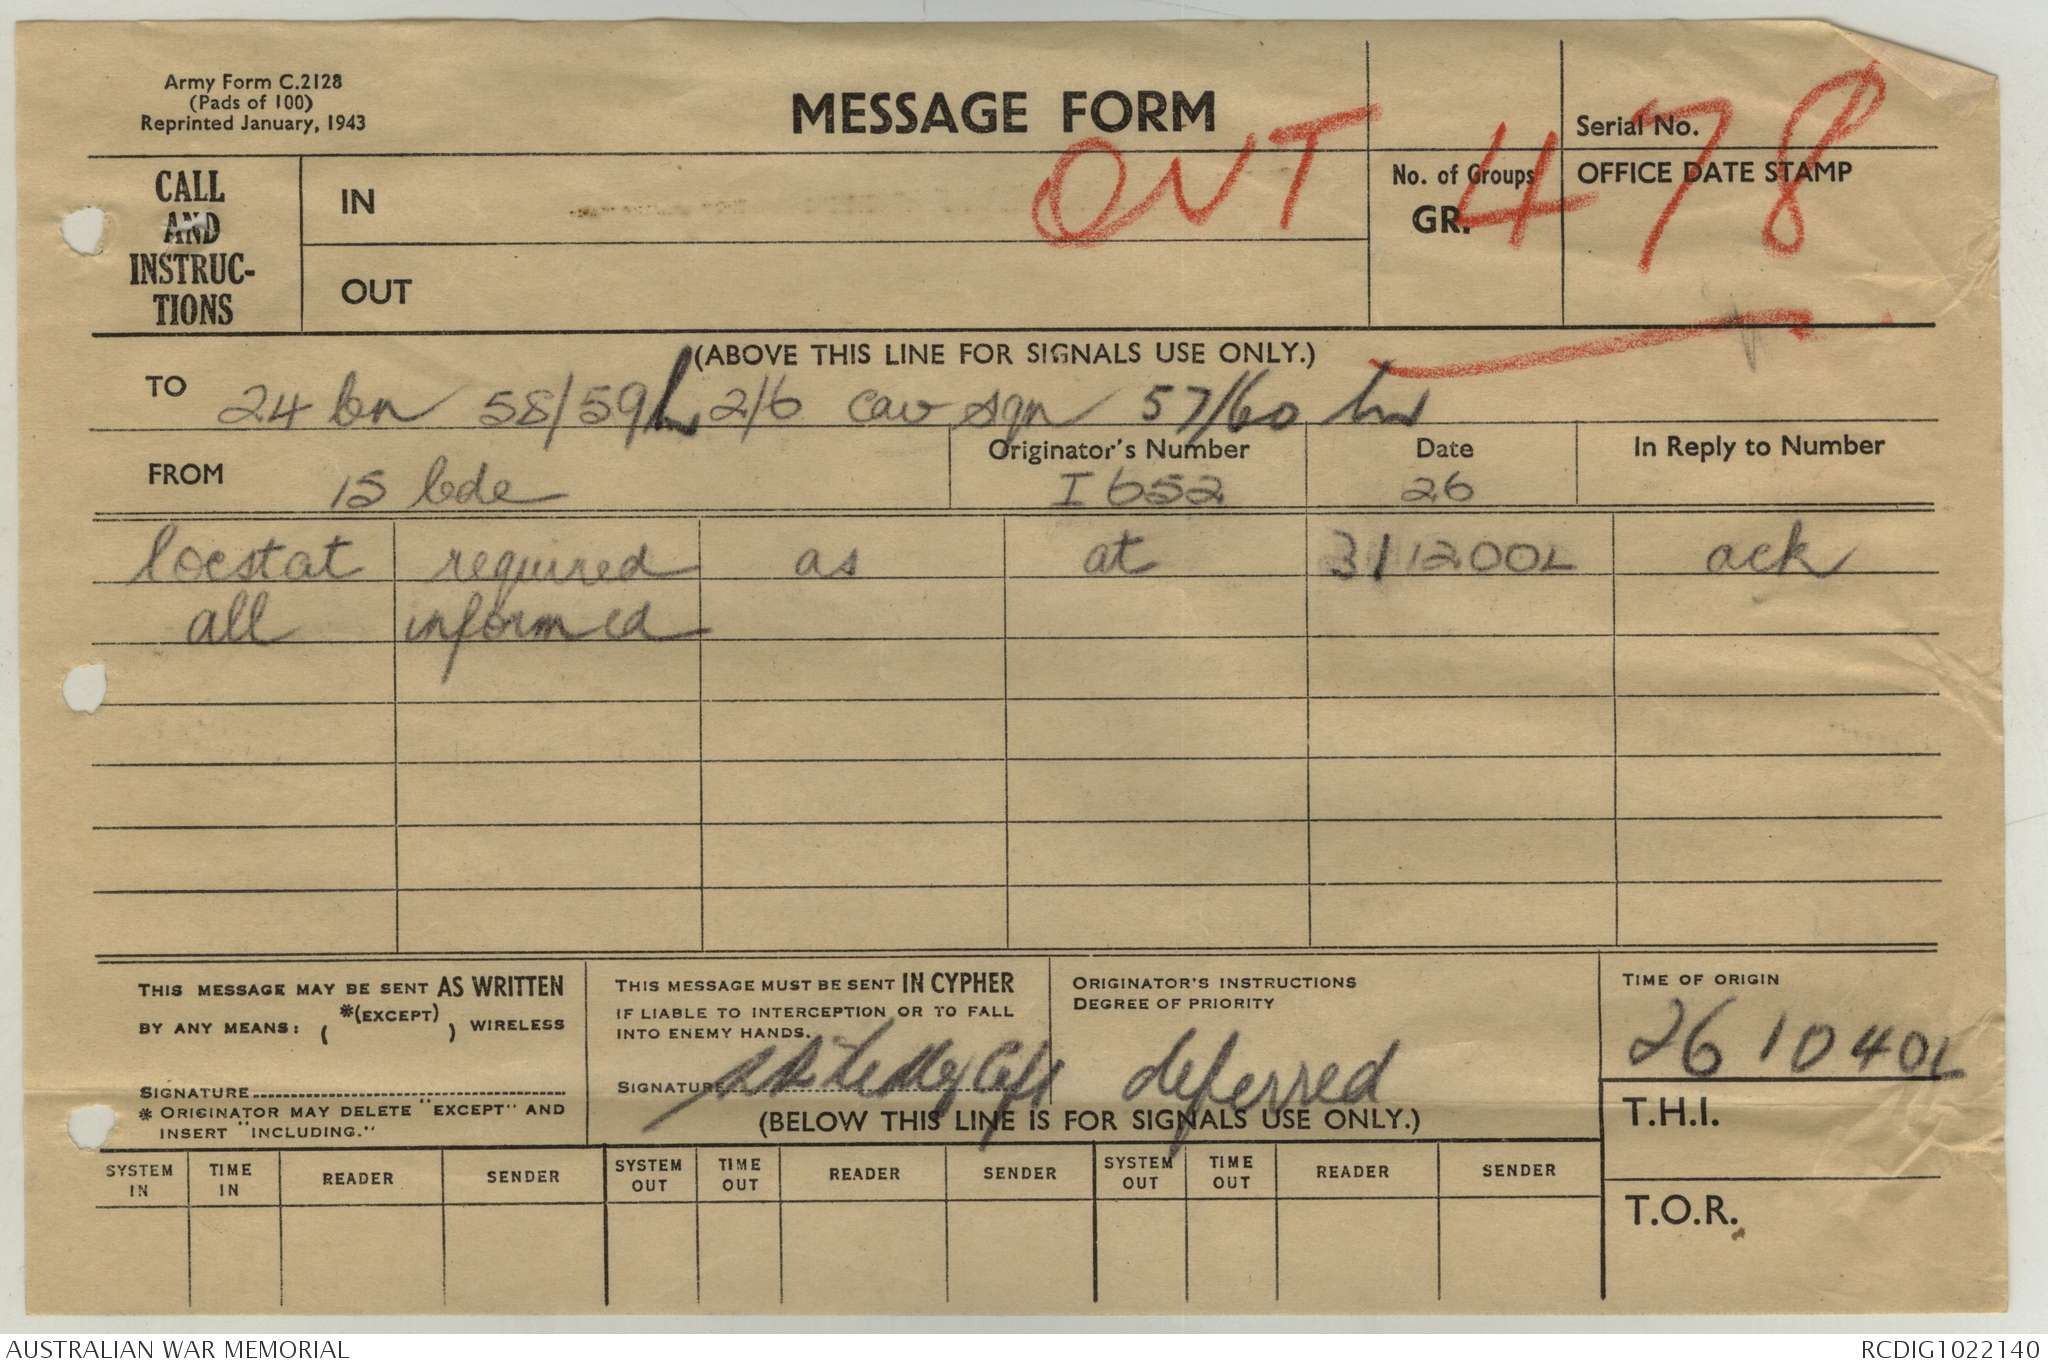 Army Form C.2128
(Pads of 100)
Reprinted January, 1943
MESSAGE FORM
OUT 478
Serial No.
CALL AND INSTRUC-TIONS
IN
No. of Groups
GR.
OFFICE DATE STAMP
OUT
(ABOVE THIS LINE FOR SIGNALS USE ONLY.)
TO 24 bn 58/59 2/6 cav sqn 57/60
FROM 15 bde
Originator's Number I 652
Date 26
In Reply to Number
locstat required as at 311200L ack
all informed
THIS MESSAGE MAY BE SENT AS WRITTEN
BY ANY MEANS: ( *(EXCEPT) ) WIRELESS
SIGNATURE
* ORIGINATOR MAY DELETE "EXCEPT" AND
INSERT "INCLUDING."
THIS MESSAGE MUST BE SENT IN CYPHER
IF LIABLE TO INTERCEPTION OR TO FALL
INTO ENEMY HANDS.
SIGNATURE Capt
ORIGINATOR'S INSTRUCTIONS
DEGREE OF PRIORITY
deferred
TIME OF ORIGIN
26 1040L
(BELOW THIS LINE IS FOR SIGNALS USE ONLY.)
T.H.I.
SYSTEM IN TIME IN READER SENDER SYSTEM OUT TIME OUT READER SENDER SYSTEM OUT TIME OUT READER SENDER
T.O.R.
AUSTRALIAN WAR MEMORIAL
RCDIG1022140